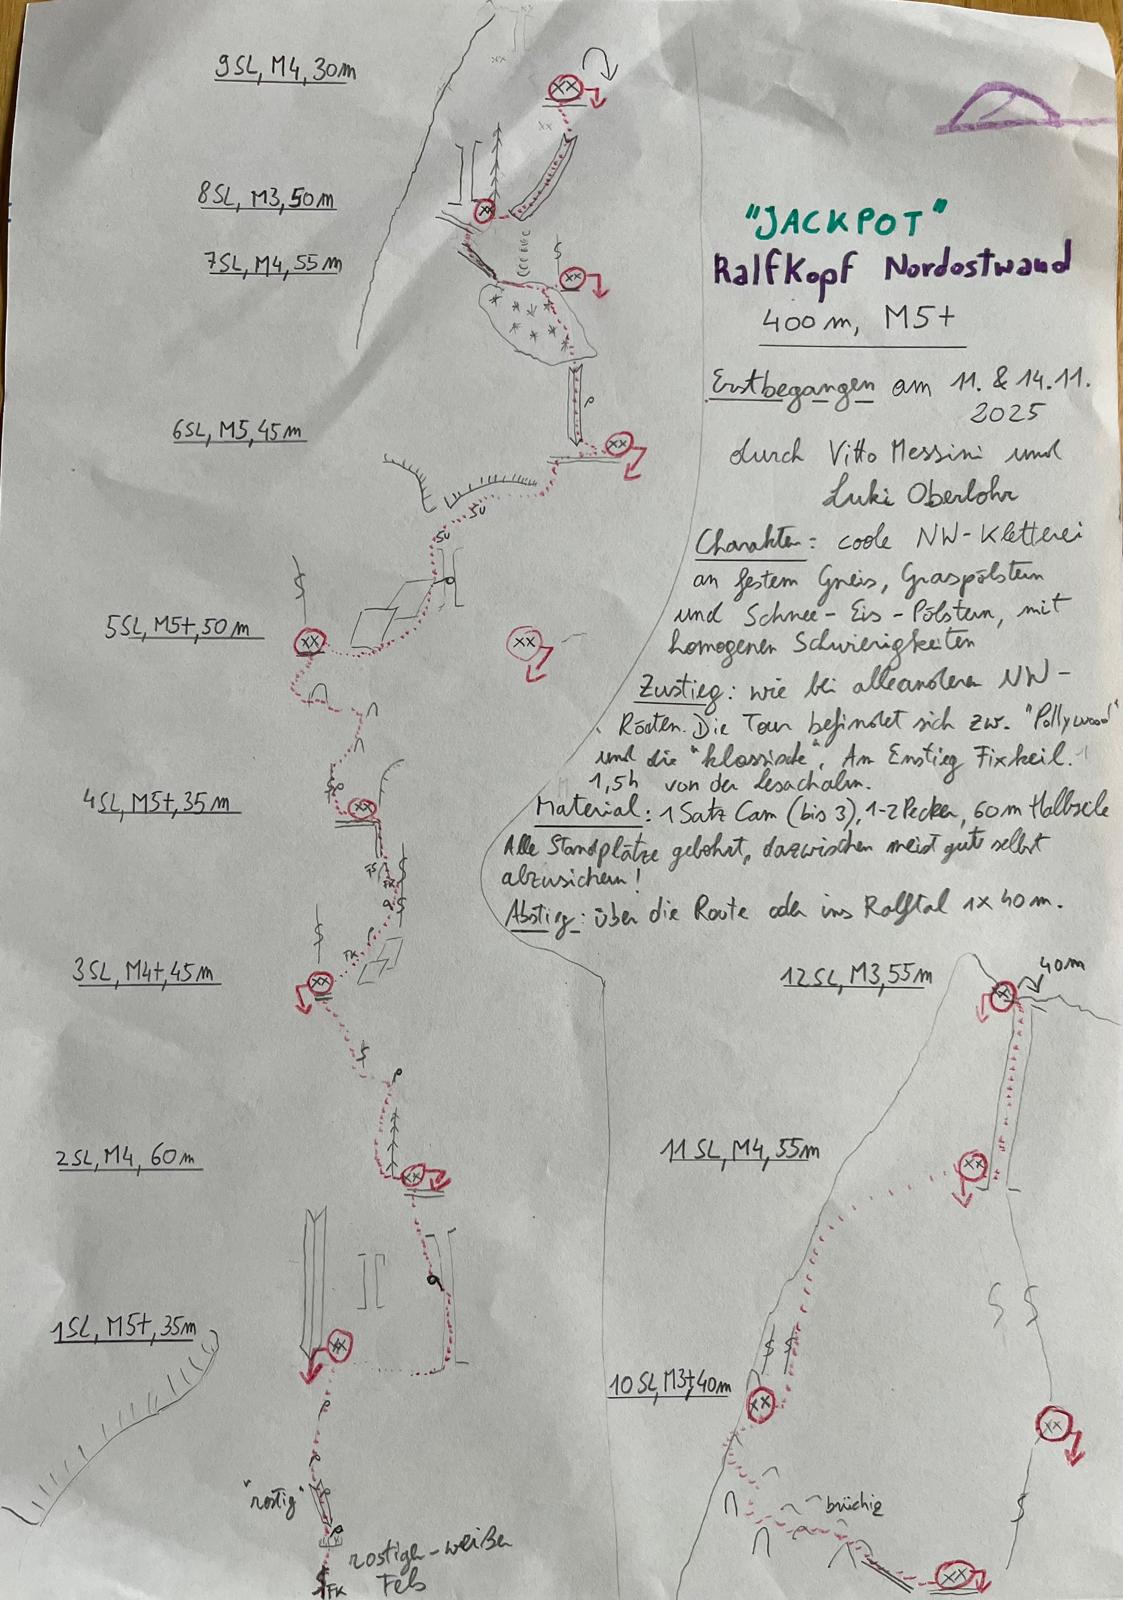 9SL, M4, 30m
8SL, M3, 50m
7SL, M4, 55m
6SL, M5, 45m
5SL, M5+, 50m
4SL, M5+, 35m
3SL, M4+, 45m
2SL, M4, 60m
1SL, M5+, 35m
"rostig"
rostigen-weißen
Fels
FK
SU
SU
FK
"JACKPOT"
Ralfkopf Nordostwand
400m, M5+
Erstbegangen am 11. & 14.11.
2025
durch Vitto Messini und
Luki Oberlohr
Charakter: coole NW-Kletterei
an festem Gneis, Graspölstern
und Schnee-Eis-Pölstern, mit
homogenen Schwierigkeiten
Zustieg: wie bei alleanderen NW-
Routen. Die Tour befindet sich zw. "Pollywood"
und die "klassische". Am Einstieg Fixkeil.
1,5h von der Lesachalm.
Material: 1 Satz Cam (bis 3), 1-2 Pecker, 60m Halbseile
Alle Standplätze gebohrt, dazwischen meist gut selbst
abzusichern!
Abstieg: über die Route oder ins Ralftal 1x40m.
12SL, M3, 55m
40m
11SL, M4, 55m
10SL, M3+, 40m
brüchig